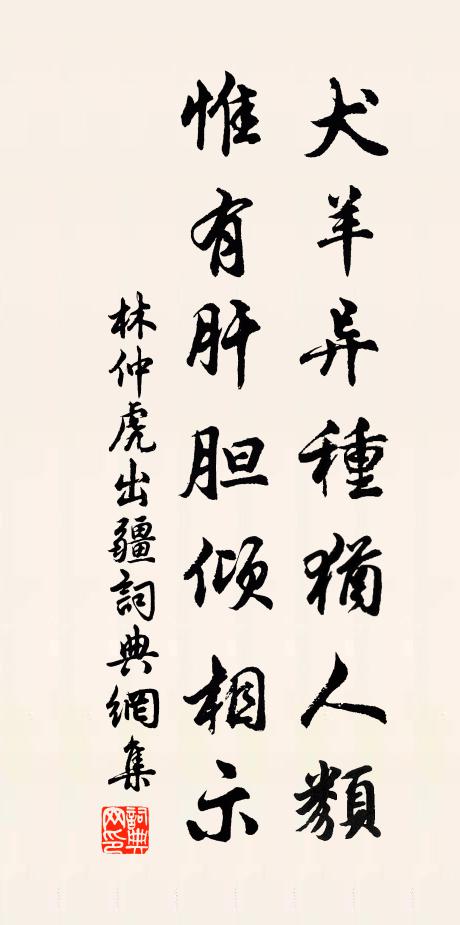 犬羊异種猶人類
惟有肝胆傾相示
林仲虎出疆詞典網集
詞典網印